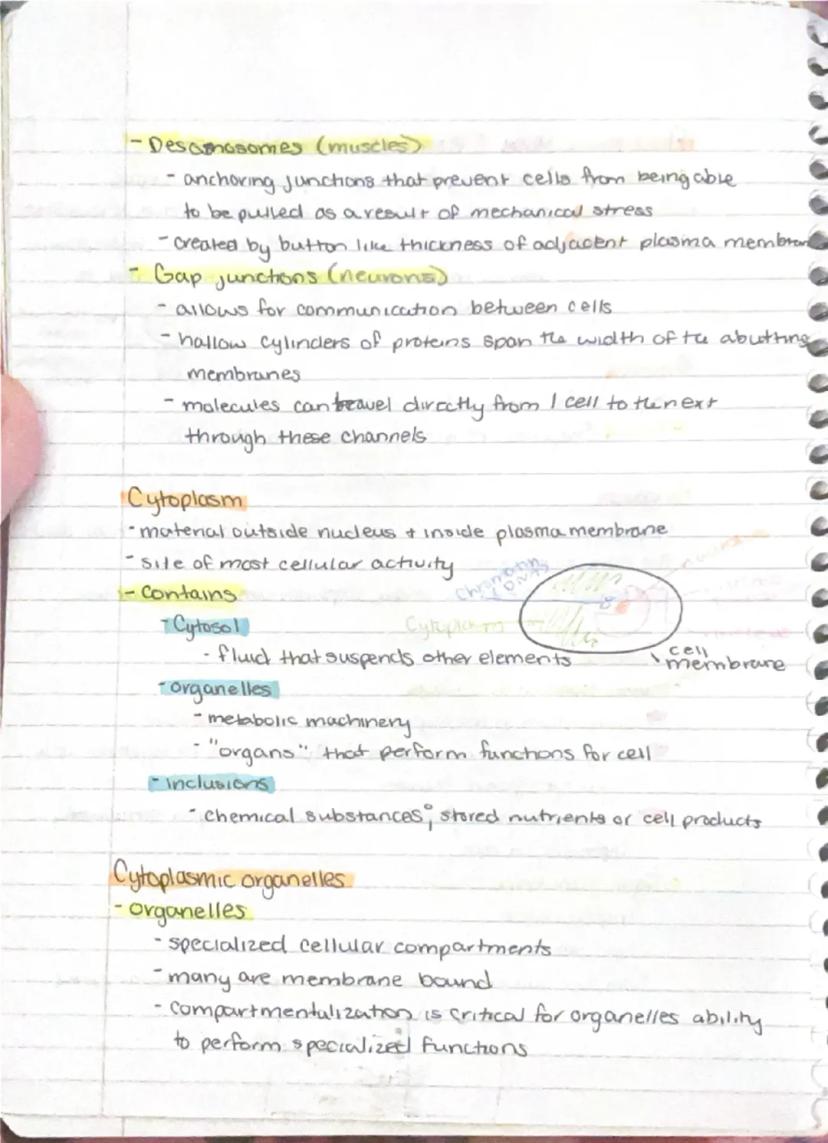 - Desmosomes (muscles)
- anchoring junctions that prevent cells from being able
to be pulled as a result of mechanical stress
- created by button like thickness of adjacent plasma membran
- Gap junctions (neurons)
- allows for communication between cells
- hallow cylinders of proteins span the width of the abutting
membranes
- molecules can travel directly from 1 cell to the next
through these channels
Cytoplasm
- material outside nucleus + inside plasma membrane
- site of most cellular activity
Chromatin
- contains
- Cytosol
Cytoplasm
- fluid that suspends other elements
cell
membrane
- organelles
- metabolic machinery
- "organs" that perform functions for cell
- inclusions
- chemical substances; stored nutrients or cell products
Cytoplasmic organelles
- organelles
- specialized cellular compartments
- many are membrane bound
- compartmentulization is critical for organelles ability
to perform specialized functions